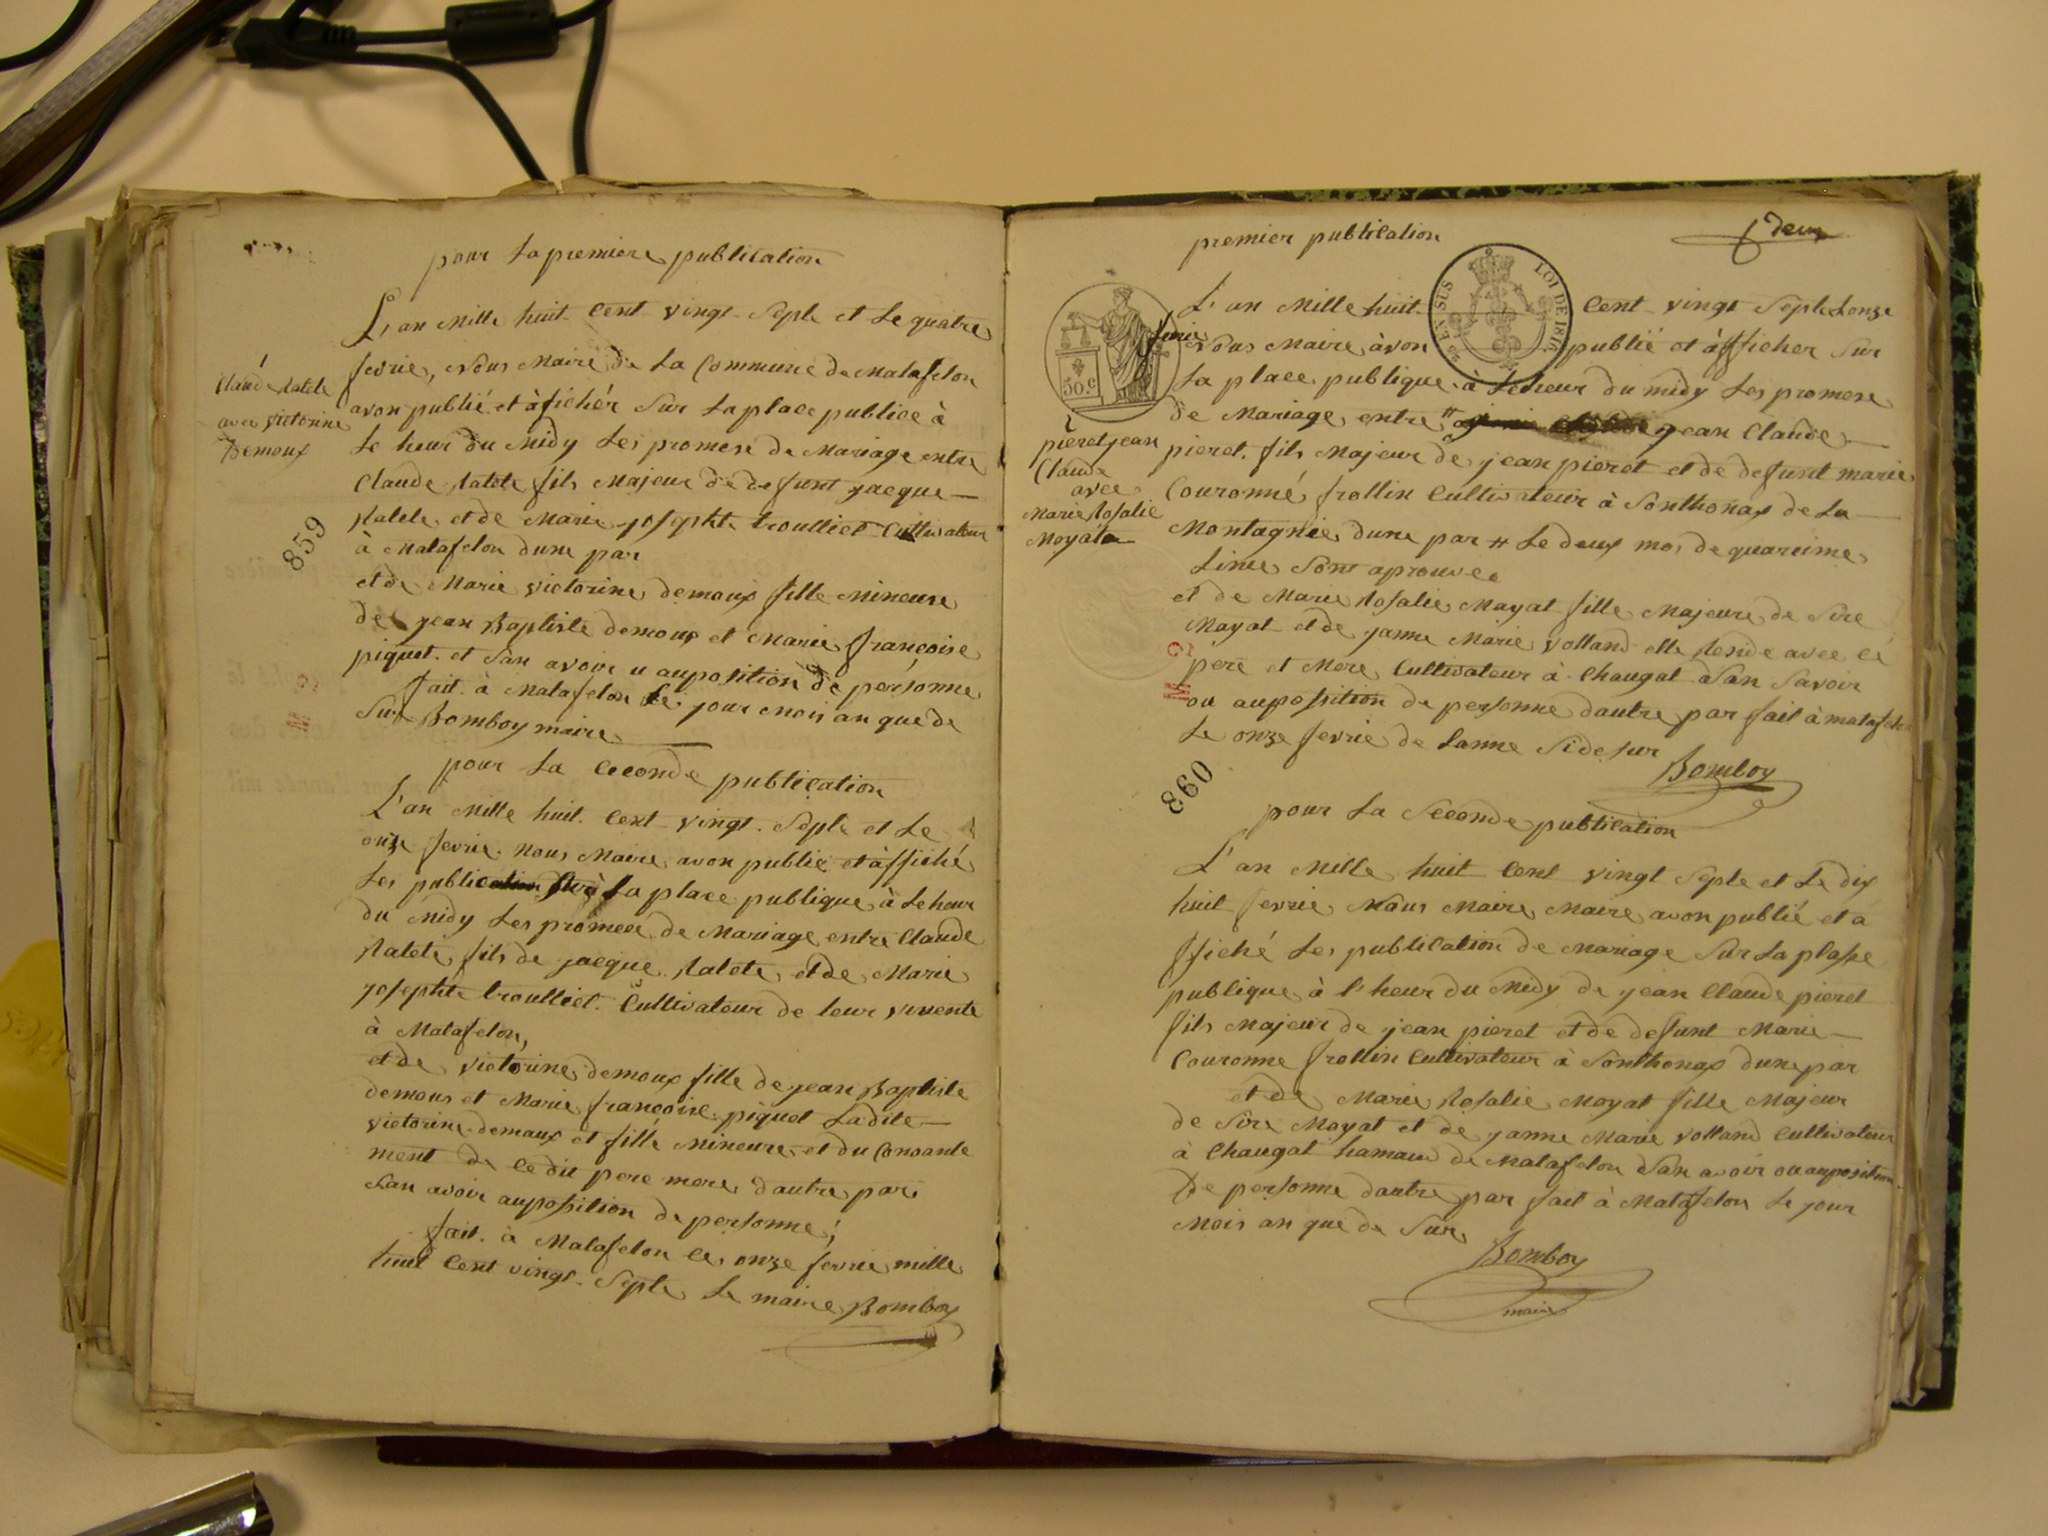 pour la premiere publication
L'an mille huit cent vingt Septe et le quatre
fevrie, nous Maire de la Commune de Matafelon
avon publié et àfichér Sur la place publice à
le heur du Midy les promese de Mariage entre
Claude Ratele fils Majeur de defunt jacque
Ratele et de Marie josephte troulliet Cultivateur
à Matafelon dune par
et de Marie victorine demoux fille Mineure
de jean Baptiste demoux et Marie françoise
piquet. et San avoir u auposition de personne
fait à Matafelon le jour mois an que de
Sur Bomboy maire
Claude Ratele
avec victorine
Demoux
859
pour la Ceconde publication
L'an Mille huit Cent vingt Septe et le
onze fevrie nous Maire avon publié et àffiché
les publication à la place publique à le heur
du Midy les promese de Mariage entre Claude
Ratele fils de jacque Ratete et de Marie
josephte troulliet. Cultivateur de leur vivente
à Matafelon,
et de victorine demoux fille de jean Baptiste
demoux et Marie françoise piquet Ladite
victorine demaux et fille Mineure et du Consante
ment de Ce dit pere mere dautre par
San avoir auposition de personne;
fait à Matafelon le onze fevrie mille
huit Cent vingt Septe Le maire Bomboy
deux
premier publication
50.c
LOI DE 1816
L'an Mille huit Cent vingt Septe Lonze
fevrie nous Maire àvon publié et àfficher Sur
La place publique à Leheur du midy Les promese
de Mariage entre jean Claude
pieret. fils Majeur de jean pieret et de defunt marie
Couronné frollin Cultivateur à Sonthonax de La
Montagnie dune par # Le deux mos de quarcime
Lime Sont aprouvee
et de Marie Rosalie Moyat fille Majeure de Sire
Mayat et de janne Marie volland elle Reside avec Cé
pere et Mere Cultivateur à Chaugat àSan Savoir
ou auposition de personne dautre par fait à matafelon
Le onze fevrie de Lanne Sidesur
Bomboy
pieret jean
Claude
avec
Marie Rosalie
Moyat
860
pour La Seconde publication
L'an Mille huit Cent vingt Septe et Le dix
huit fevrie Nous Maire Maire avon publié et à
ffiché Les publication de Mariage Sur La plasse
publique à l'heur du Midy de jean Claude pieret
fils Majeur de jean pieret et de defunt Marie
Couronne frollin Cultivateur à Sonthonax dune par
et de Marie Rosalie Moyat fille Majeur
de Sire Mayat et de janne Marie volland Cultivateur
à Chaugat hamaud de Matafelon àSan avoir ou auposition
de personne dautre par fait à Matafelon Le jour
Mois an que de Sur
Bomboy
maire